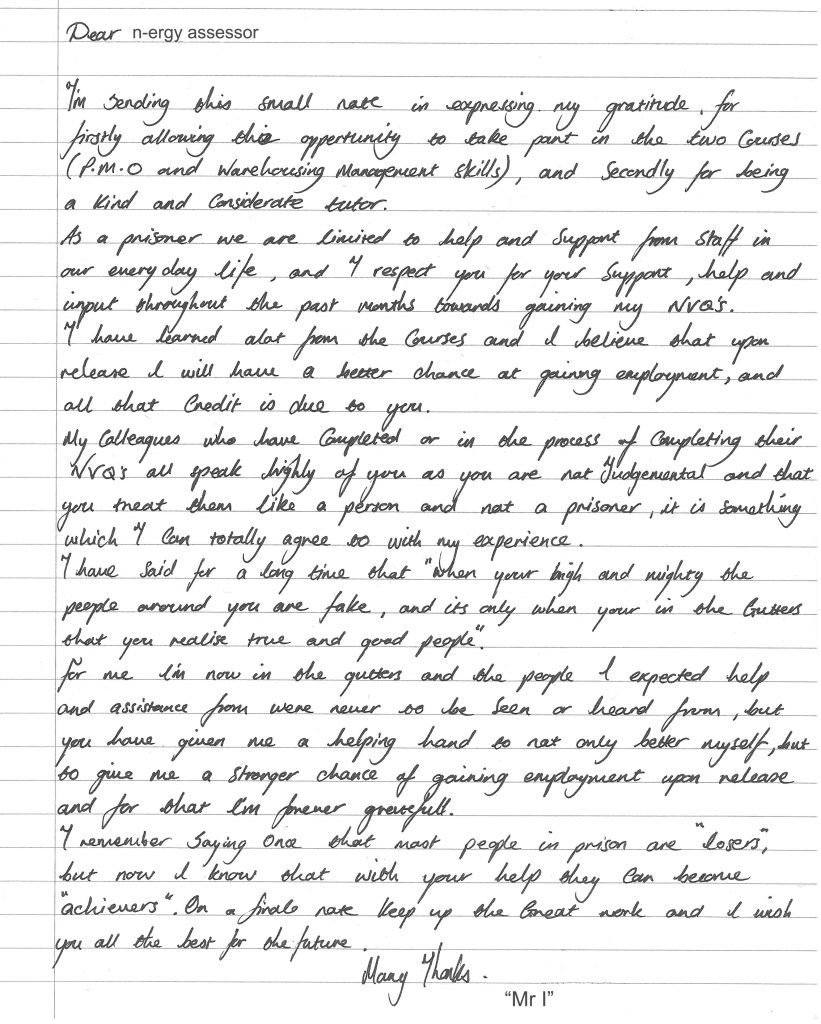 Dear n-ergy assessor
I'm Sending this small note in expressing my gratitude, for
firstly allowing this opportunity to take part in the two Courses
(P.M.O and Warehousing Management Skills), and Secondly for being
a Kind and Considerate tutor.
As a prisoner we are limited to help and Support from Staff in
our everyday life, and I respect you for your Support, help and
input throughout the past months towards gaining my NVQ's.
I have learned alot from the Courses and I believe that upon
release I will have a better chance at gaining employment, and
all that Credit is due to you.
My Colleagues who have Completed or in the process of Completing their
NVQ's all speak highly of you as you are not Judgemental and that
you treat them like a person and not a prisoner, it is something
which I Can totally agree to with my experience.
I have Said for a long time that "when your high and mighty the
people around you are fake, and its only when your in the Gutters
that you realise true and good people".
For me I'm now in the gutters and the people I expected help
and assistance from were never to be Seen or heard from, but
you have given me a helping hand to not only better myself, but
to give me a Stronger chance of gaining employment upon release
and for that I'm forever gratefull.
I remember Saying Once that most people in prison are "losers",
but now I know that with your help they Can become
"achievers". On a finale note Keep up the Great work and I wish
you all the best for the future.
Many Thanks.
"Mr I"